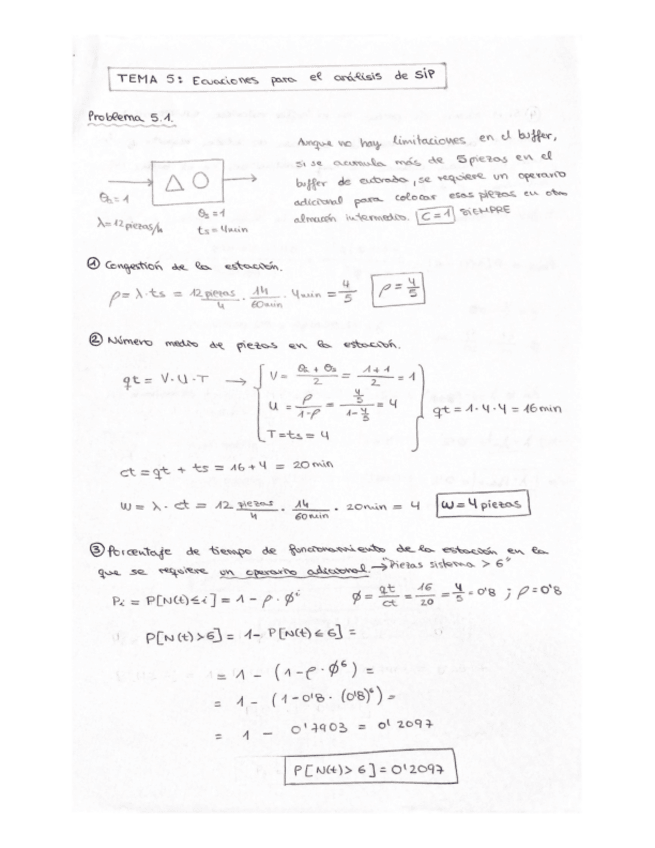 TEMA 5: Ecuaciones para el análisis de SIP
Problema 5.1.
Aunque no hay limitaciones en el buffer,
si se acumula más de 5 piezas en el
buffer de entrada, se requiere un operario
adicional para colocar esas piezas en otro
almacén intermedio. C=1 SIEMPRE
θ₁=1
λ=12 piezas/h
θ₂=1
ts=4min
① Congestión de la estación.
ρ = λ·ts = 12 piezas/h · 1h/60min · 4min = 4/5 ρ = 4/5
② Número medio de piezas en la estación.
qt = V·U·T → V = (θ₁+θ₂)/2 = (1+1)/2 = 1
U = ρ/(1-ρ) = (4/5)/(1-4/5) = 4
T = ts = 4
qt = 1·4·4 = 16min
ct = qt + ts = 16+4 = 20min
ω = λ·ct = 12 piezas/h · 1h/60min · 20min = 4 ω = 4 piezas
③ Porcentaje de tiempo de funcionamiento de la estación en la
que se requiere un operario adicional. → "Piezas sistema > 6"
Pi = P[N(t)≤i] = 1 - ρ·ϕ^i ϕ = qt/ct = 16/20 = 4/5 = 0'8 ; ρ=0'8
P[N(t)>6] = 1 - P[N(t)≤6] =
= 1 - (1-ρ·ϕ⁶) =
= 1 - (1-0'8·(0'8)⁶) =
= 1 - 0'7903 = 0'2097
P[N(t)>6] = 0'2097